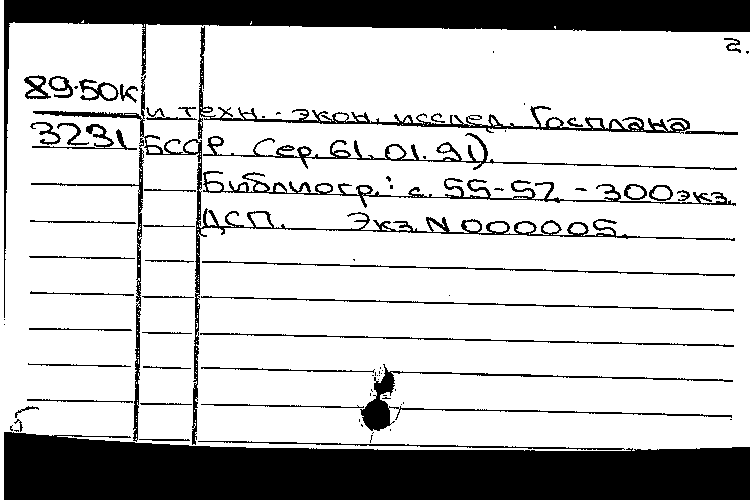 2.
89-50к
и техн.-экон. исслед. Госплана
3231 БССР. Сер. 61.01.91).
Библиогр.: с. 55-57. - 300 экз.
ДСП. Экз. N 000005.
б